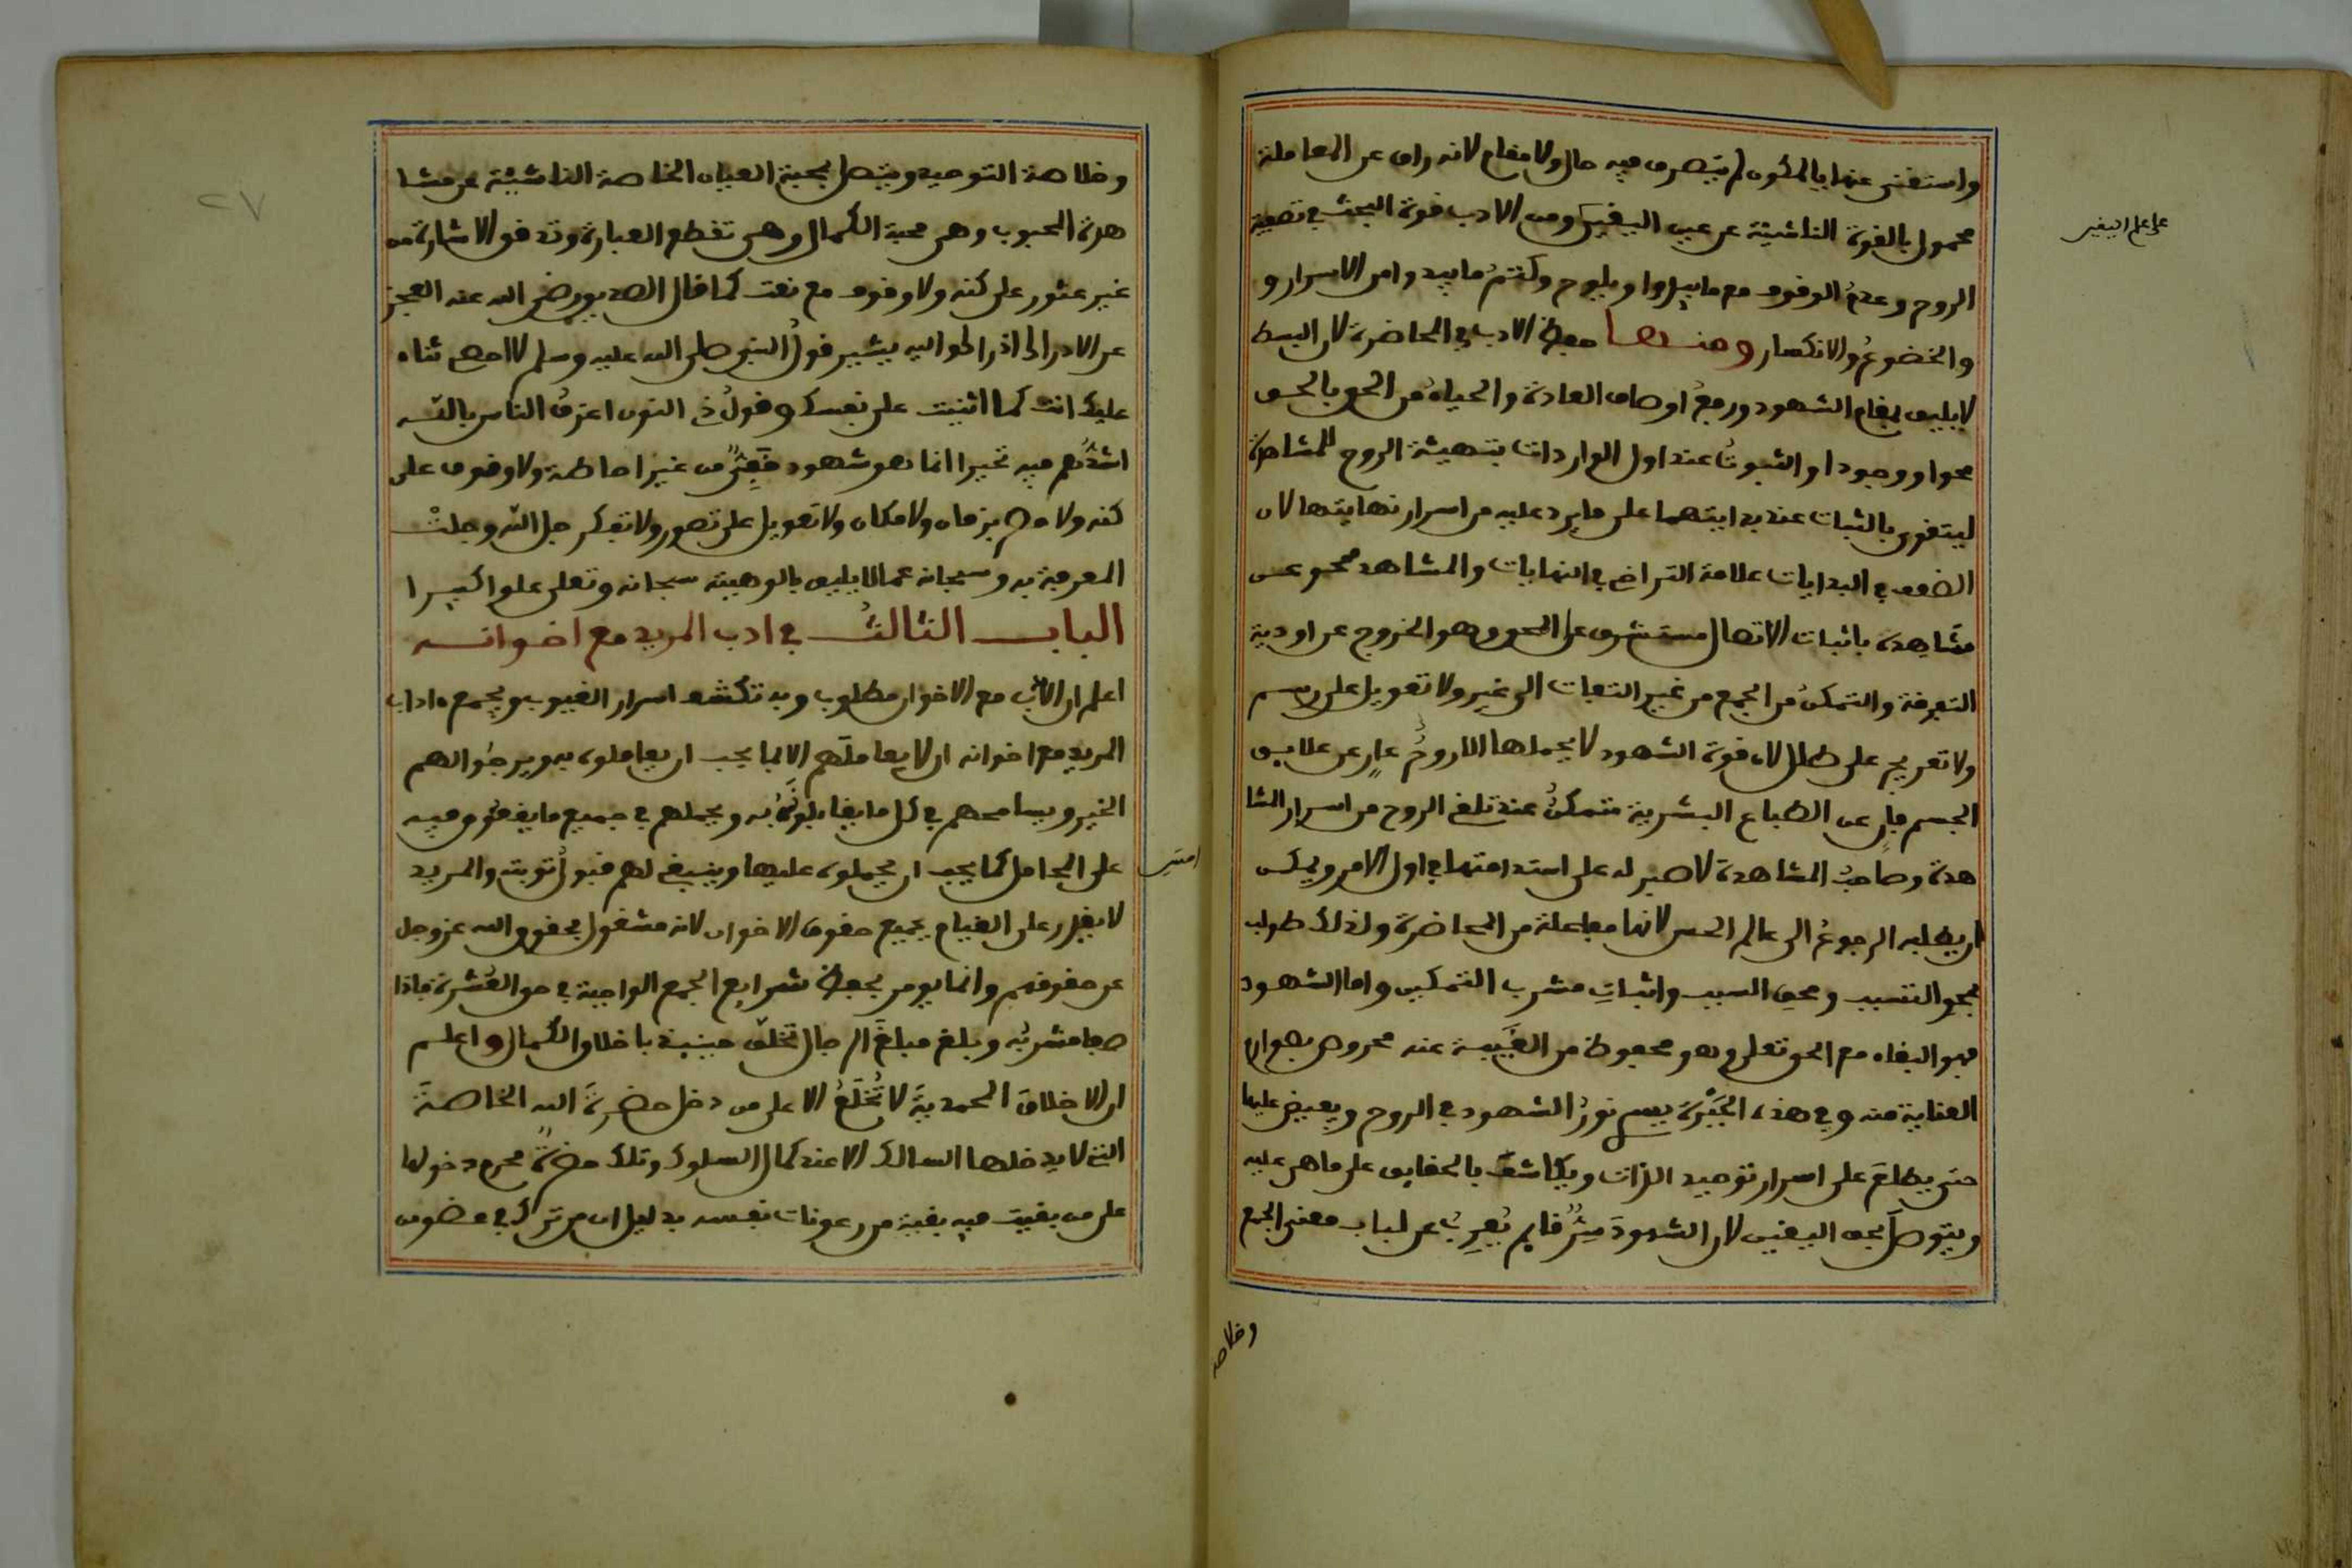 واستغنى عنها بالمكون لم يتصرف فيه حال ولا مقام لانه راق عن المعاملة
محمول بالقوة الناشئة عن عين اليقين ومن الادب قوة البحث في تصفية
على علم اليقين
الروح وعدم الوقوف مع ما يبدوا ويلوح وكتم ما يبدوا من الاسرار و
والخضوع والانكسار ومنها حفظ الادب في المحاضرة لان البسط
لا يليق بمقام الشهود ورفع اوصاف العادة والحياء من الحق بالحق
محوا ووجودا والثبوت عند اول الواردات بتهيئة الروح للمشاهدة
ليتقوى بالثبات عند بدايتهما على ما يرد عليه من اسرار نهايتها لان
الضعف في البدايات علامة التراخي في النهايات والمشاهد محو عن
مشاهدة باثبات الاتصال مستشرف على المحو وهو الخروج عن اودية
التفرقة والتمكن من الجمع من غير التفات الى غير ولا تعويل على رسم
ولا تعريج على طلل لان قوة الشهود لا يحملها الا روح عار عن علايق
الجسم فان عن الطباع البشرية متمكن عند تلقي الروح من اسرار المشا
هدة وصاحب المشاهدة لا صبر له على استدامتها في اول الامر ويمكن
ان يطلبه الرجوع الى عالم الحس لانها مفاعلة من المحاضرة ولذلك طولب
بمحو التسبب ومحق السبب واثبات مشرب التمكين واما الشهود
فهو البقاء مع الحق تعلى وهو محفوظ من الغيبة عنه محروس بعوان
العناية منه وفي هذه الحيرة يسري نور الشهود في الروح ويفيض عليها
حتى يطلع على اسرار توحيد الذات ويكاشف بالحقايق على ما هي عليه
ويتوصل بحق اليقين لان الشهود سر قايم يعرب عن لباب معنى الجمع
وخلاصة
وخلاصة التوحيد ويتصل بمحبة العيان الخاصة الناشئة عن مشا
هدة المحبوب وهي محبة الكمال وهي تقطع العبارة وتدق الاشارة من
غير عثور على كنه ولا وقوف مع نعت كما قال الصديق رضي الله عنه العجز
عن الادراك ادراك واليه يشير قول النبي صلى الله عليه وسلم لا احصي ثناء
عليك انت كما اثنيت على نفسك وقول ذي النون اعرف الناس بالله
اشدهم فيه تحيرا انما هو شهود من غير احاطة ولا وقوف على
كنه ولا حصر بزمان ولا مكان ولا تعويل على تصور ولا تفكر جل الله وجلت
المعرفة به وسبحانه عما لا يليق بالوهيته سبحانه وتعلى علوا كبيرا
الباب الثالث في ادب المريد مع اخوانه
اعلم ان الادب مع الاخوان مطلوب وبه تكشف اسرار الغيوب ويجمع ءاداب
المريد مع اخوانه ان لا يعاملهم الا بما يجب ان يعاملوه به ويرجوا لهم
الخير ويسامحهم في كل ما يقابلونه به ويحملهم في جميع ما يقعون فيه
على المحامل كما يجب ان يحملوه عليها وينبغي لهم قبول توبته والمريد
لا يقدر على القيام بجميع حقوق الاخوان لانه مشغول بحقوق الله عز وجل
عن حقوقهم وانما يومر بحفظ شرايع الجمع الواجبة في حق العشرة فاذا
صفا مشربه وبلغ مبلغ الرجال تخلق حينيذ باخلاق الكمال واعلم
ان الاخلاق المحمدية لا تخلع الا على من دخل حضرة الله الخاصة
التي لا يدخلها السالك الا عند كمال السلوك وتلك حضرة محرم دخولها
على من بقيت فيه بقية من رعونات نفسه بدليل ان من ترك في عضو من